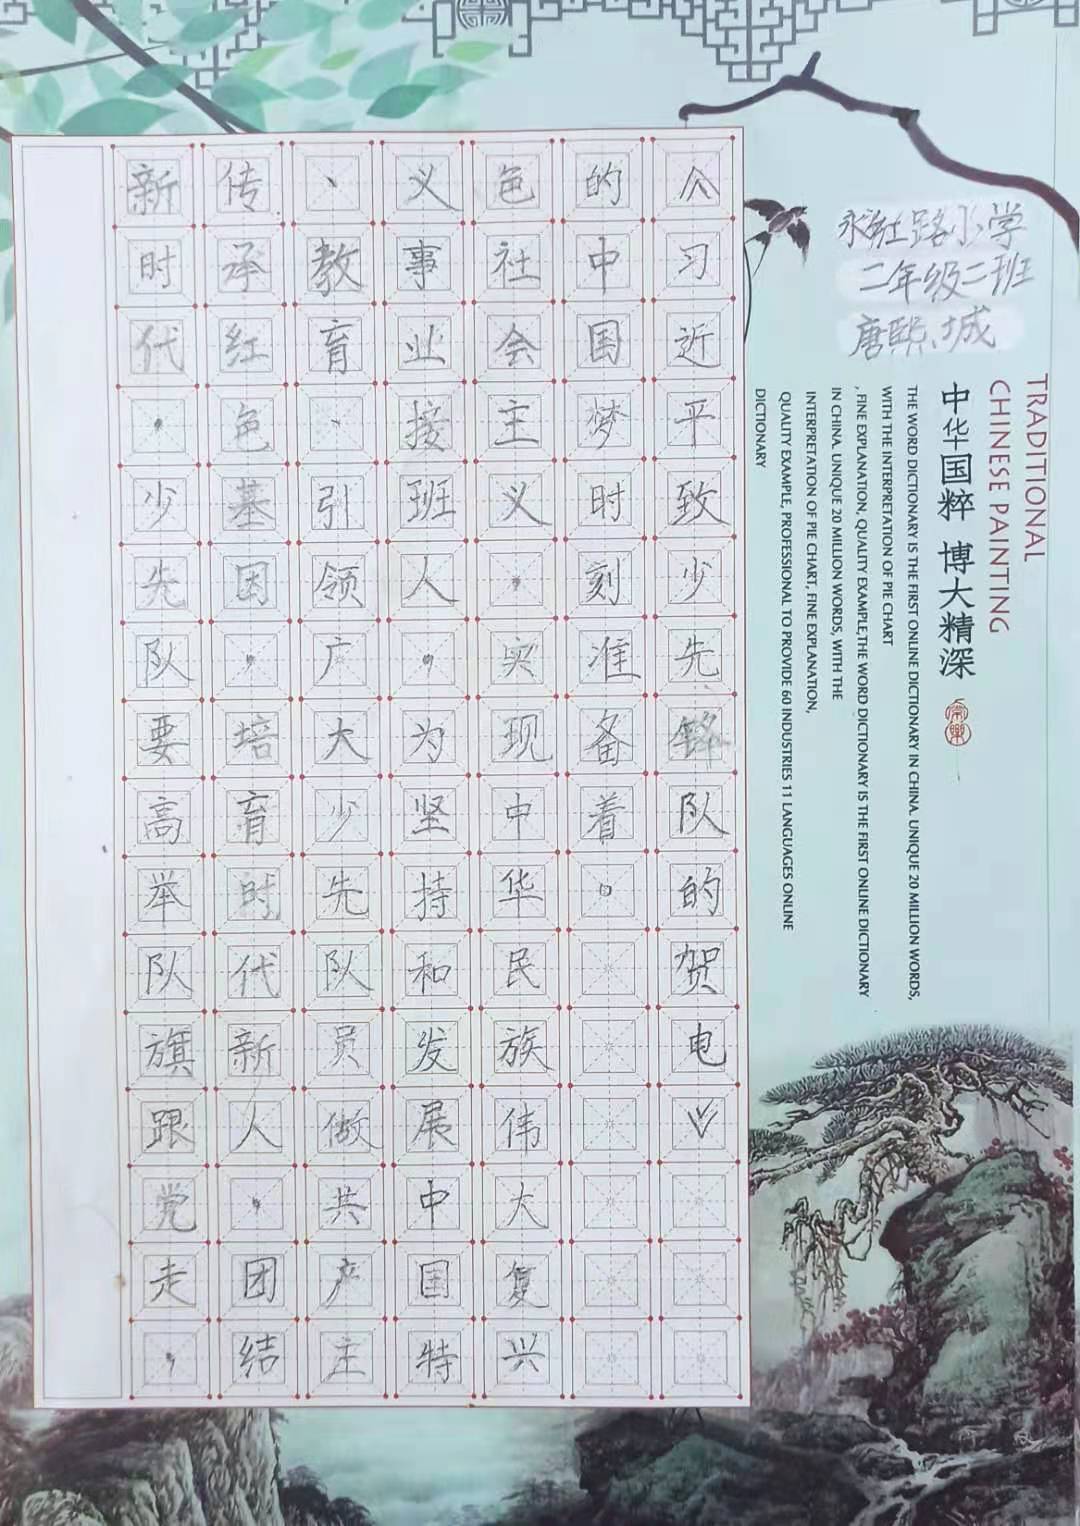 新时代，少先队要高举队旗跟党走，
传承红色基因，培育时代新人，团结
、教育、引领广大少先队员做共产主
义事业接班人，为坚持和发展中国特
色社会主义，实现中华民族伟大复兴
的中国梦时刻准备着。
《习近平致少先锋队的贺电》
路小学
二年级二班
唐熙城
TRADITIONAL
CHINESE PAINTING
中华国粹 博大精深
THE WORD DICTIONARY IS THE FIRST ONLINE DICTIONARY IN CHINA. UNIQUE 20 MILLION WORDS,
WITH THE INTERPRETATION OF PIE CHART
, FINE EXPLANATION, QUALITY EXAMPLE,THE WORD DICTIONARY IS THE FIRST ONLINE DICTIONARY
IN CHINA. UNIQUE 20 MILLION WORDS, WITH THE
INTERPRETATION OF PIE CHART, FINE EXPLANATION,
QUALITY EXAMPLE, PROFESSIONAL TO PROVIDE 60 INDUSTRIES 11 LANGUAGES ONLINE
DICTIONARY